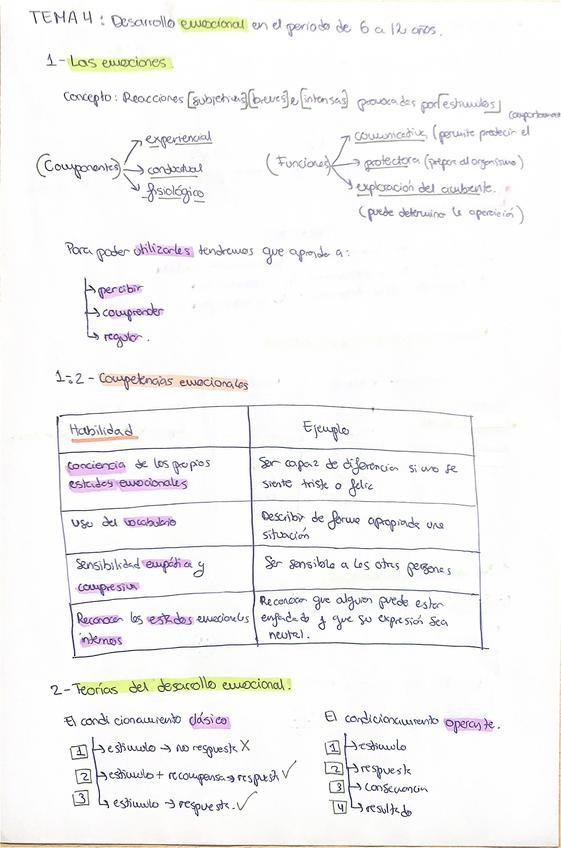 TEMA 4: Desarrollo emocional en el periodo de 6 a 12 años.
1- Las emociones.
Concepto: Reacciones [subjetivas] [breves] e [intensas] provocadas por [estímulos]
(Componentes)
experiencial
conductual
fisiológico
(Funciones)
comunicativa (permite predecir el comportamiento
protectora (prepara al organismo)
exploración del ambiente.
(puede determina la aparición)
Para poder utilizarlas tendremos que aprender a:
percibir
comprender
regular.
1.2- Competencias emocionales
Habilidad
Ejemplo
Conciencia de los propios
estados emocionales
Ser capaz de diferenciar si uno se
siente triste o feliz
Uso del vocabulario
Describir de forma apropiada una
situación
Sensibilidad empática y
compresiva
Ser sensible a las otras personas
Reconocer los estados emocionales
internos
Reconocer que alguien puede estar
enfadado y que su expresión sea
neutral.
2- Teorías del desarrollo emocional.
El condicionamiento clásico
1 estímulo → no respuesta X
2 estímulo + recompensa → respuesta ✓
3 estímulo → respuesta. ✓
El condicionamiento operante.
1 estímulo
2 respuesta
3 consecuencia
4 resultado